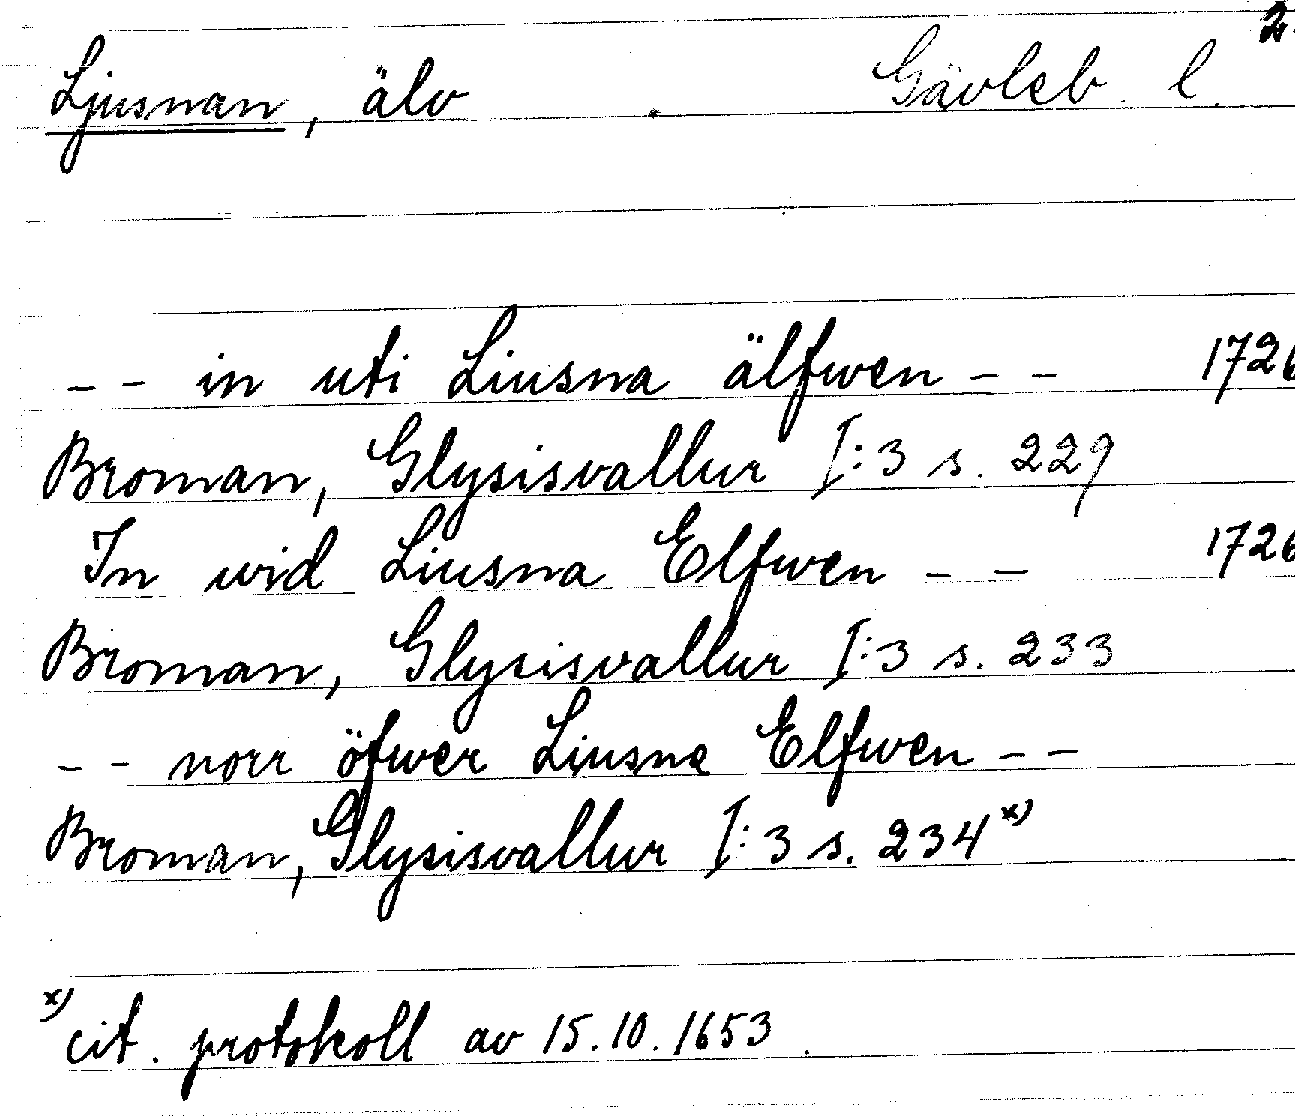 2.
Ljusnan, älv Gävleb. l.
-- in uti Liusna älfwen -- 1726
Broman, Glysisvallur I:3 s. 229
In wid Liusna Elfwen -- 1726
Broman, Glysisvallur I:3 s. 233
-- norr öfwer Liusne Elfwen --
Broman, Glysisvallur I:3 s. 234 x)
x) cit. protokoll av 15.10.1653.